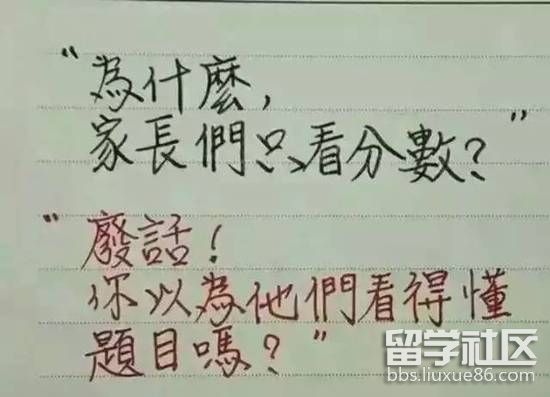 “為什麼，
家長們只看分數？”
“廢話！
你以為他們看得懂
題目嗎？”
留学社区
bbs.liuxue86.com